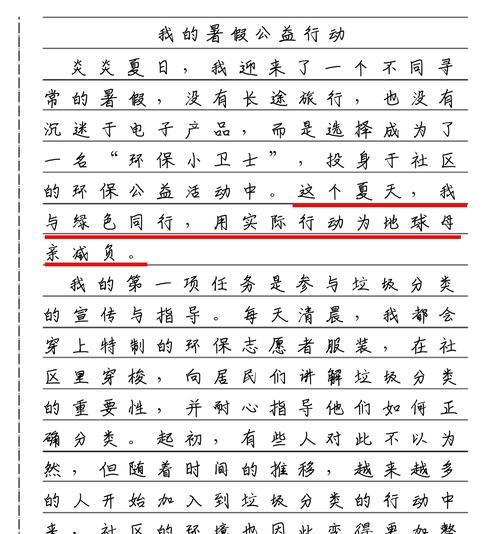 我的暑假公益行动
炎炎夏日，我迎来了一个不同寻
常的暑假，没有长途旅行，也没有
沉迷于电子产品，而是选择成为了
一名“环保小卫士”，投身于社区
的环保公益活动中。这个夏天，我
与绿色同行，用实际行动为地球母
亲减负。
我的第一项任务是参与垃圾分类
的宣传与指导。每天清晨，我都会
穿上特制的环保志愿者服装，在社
区里穿梭，向居民们讲解垃圾分类
的重要性，并耐心指导他们如何正
确分类。起初，有些人对此不以为
然，但随着时间的推移，越来越多
的人开始加入到垃圾分类的行动中
来，社区的环境也因此变得更加整